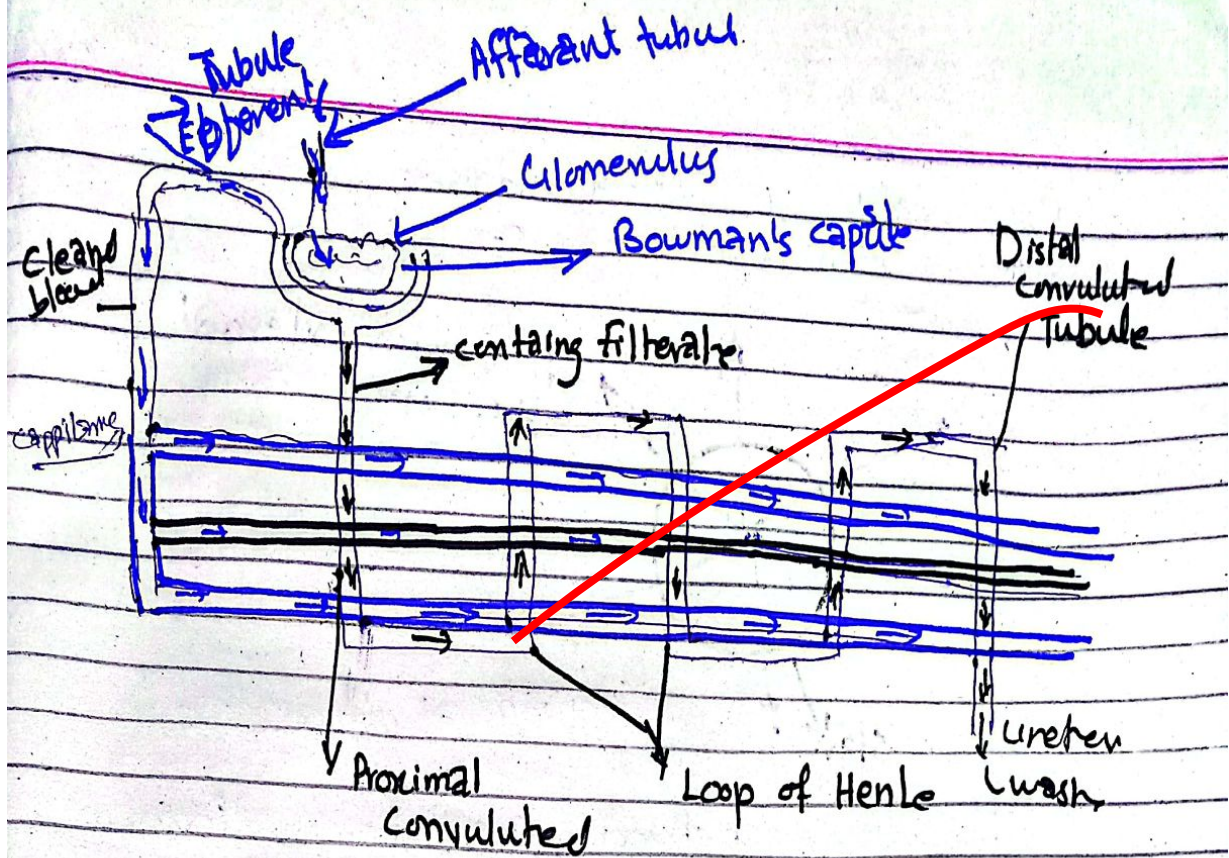 Afferant tubul.
Tubule
Efferent
Glomerulus
Bowman's capsule
Distal
convuluted
Tubule
Cleand
blood
containg filterate
cappilaries
Proximal
Convuluted
Loop of Henle
Ureter
(wash